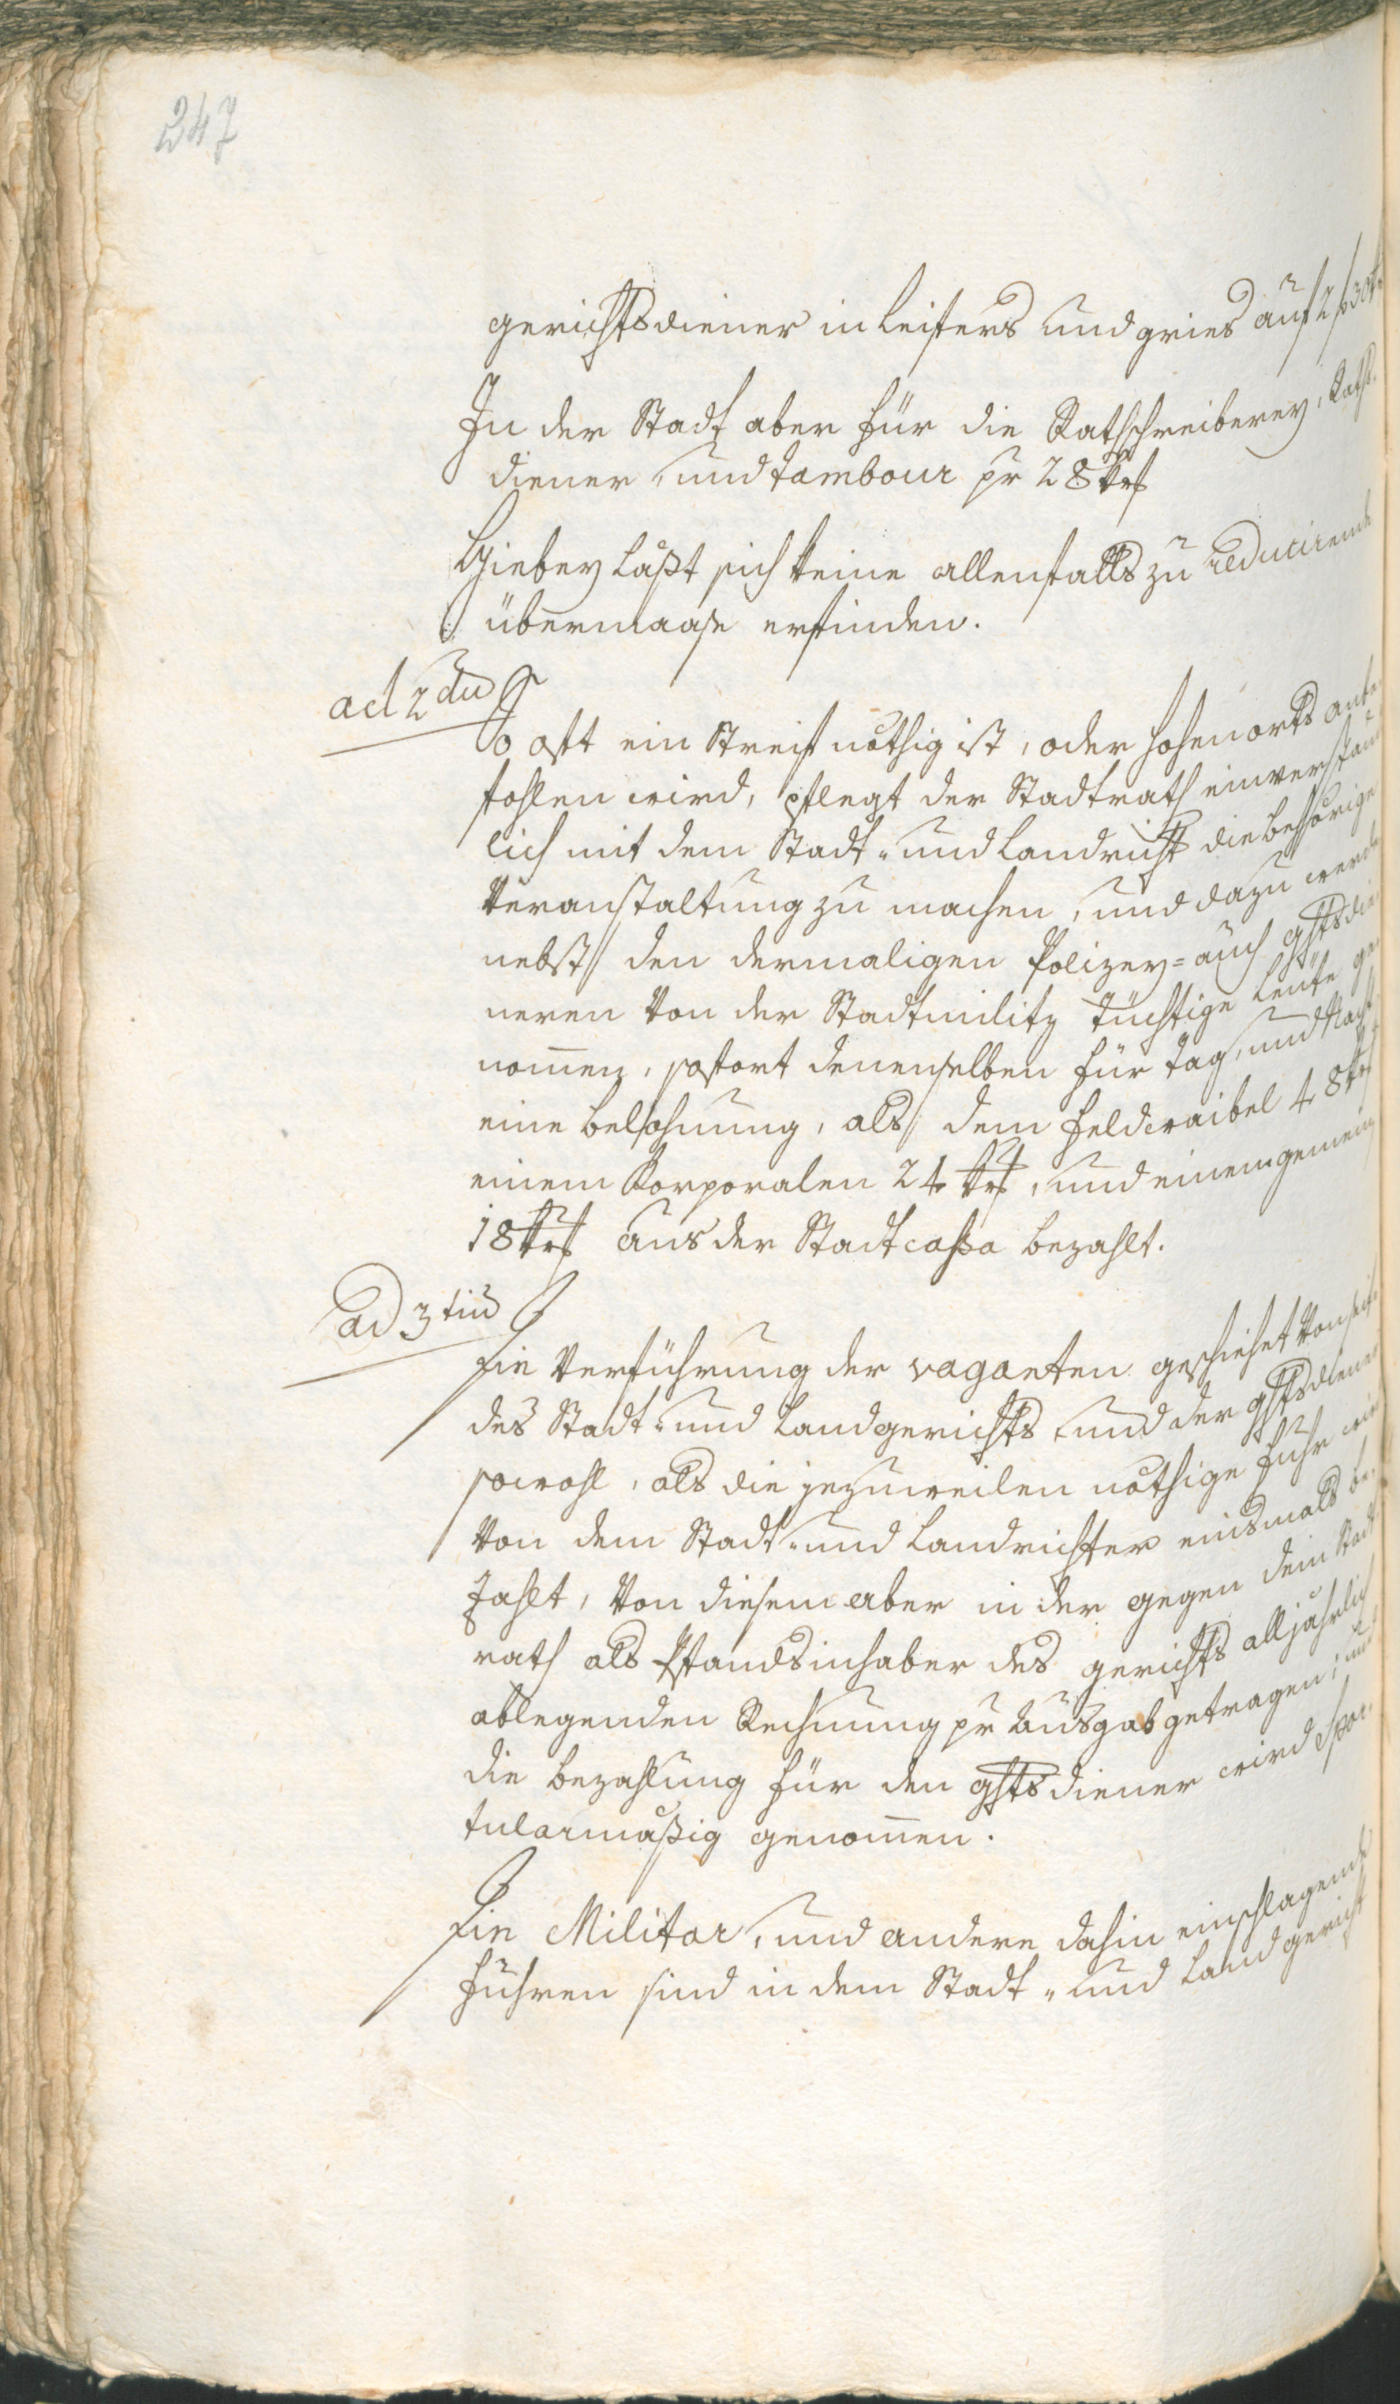 247
gerichtsdiener in Leifers und gries auf 2 f 30 kr
In der Stadt aber für die Rathschreiberey, Raths-
diener, und tambour pr 28 kr
Hiebey laßt sich keine allenfalls zu reducirende
übermaase erfinden.
ad 2dũ
So oft ein Streif nöthig ist, oder hohenorts anbe-
fohlen wird, pflegt der Stadtrath einverständ-
lich mit dem Stadt- und Landricht die behörige
Veranstaltung zu machen, und dazu werden
nebst den dermaligen Polizey- auch ghtsdie-
neren von der Stadtmilitz tüchtige Leüte ge-
nom̄en, sofort denenselben für tag, und Nacht
eine belohnung, als dem feldwaibel 48 kr
einem Korporalen 24 kr, und einem gemein
18 kr aus der Stadtcaßa bezahlt.
ad 3tiũ
Die Verführung der vaganten geschiehet von seite
des Stadt- und Landgerichts und der ghtsdiener
sowohl, als die jezuweilen nöthige fuhr wird
von dem Stadt- und Landrichter einsmals be-
zahlt, von diesem aber in der gegen dem Stadt
rath als Pfandsinhaber des gerichts alljährlich
ablegenden Rechnung pr Ausgab getragen; und
die bezahlung für den ghtsdiener wird Spor-
tularmäßig genom̄en.
Die Militar, und andere dahin einschlagende
fuhren sind in dem Stadt- und Landgericht